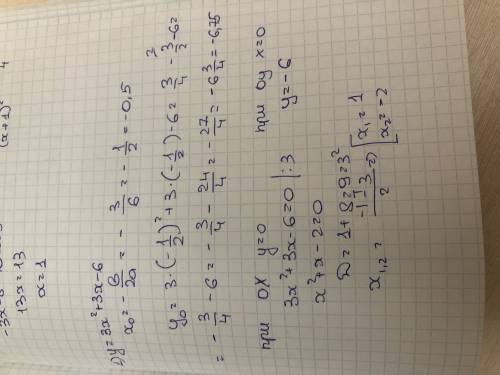 (x+1)² 4
13x=13
x=1
1) y=3x²+3x-6
x₀ = -b/2a = -3/6 = -1/2 = -0,5
y₀ = 3·(-1/2)² + 3·(-1/2) - 6 = 3/4 - 3/2 - 6 =
= -3/4 - 6 = -3/4 - 24/4 = -27/4 = -6 3/4 = -6,75
при OX y=0 при Oy x=0
3x²+3x-6=0 |:3 y=-6
x²+x-2=0
D=1+8=9=3²
x₁,₂ = (-1±3)/2 => [x₁=1
[x₂=-2